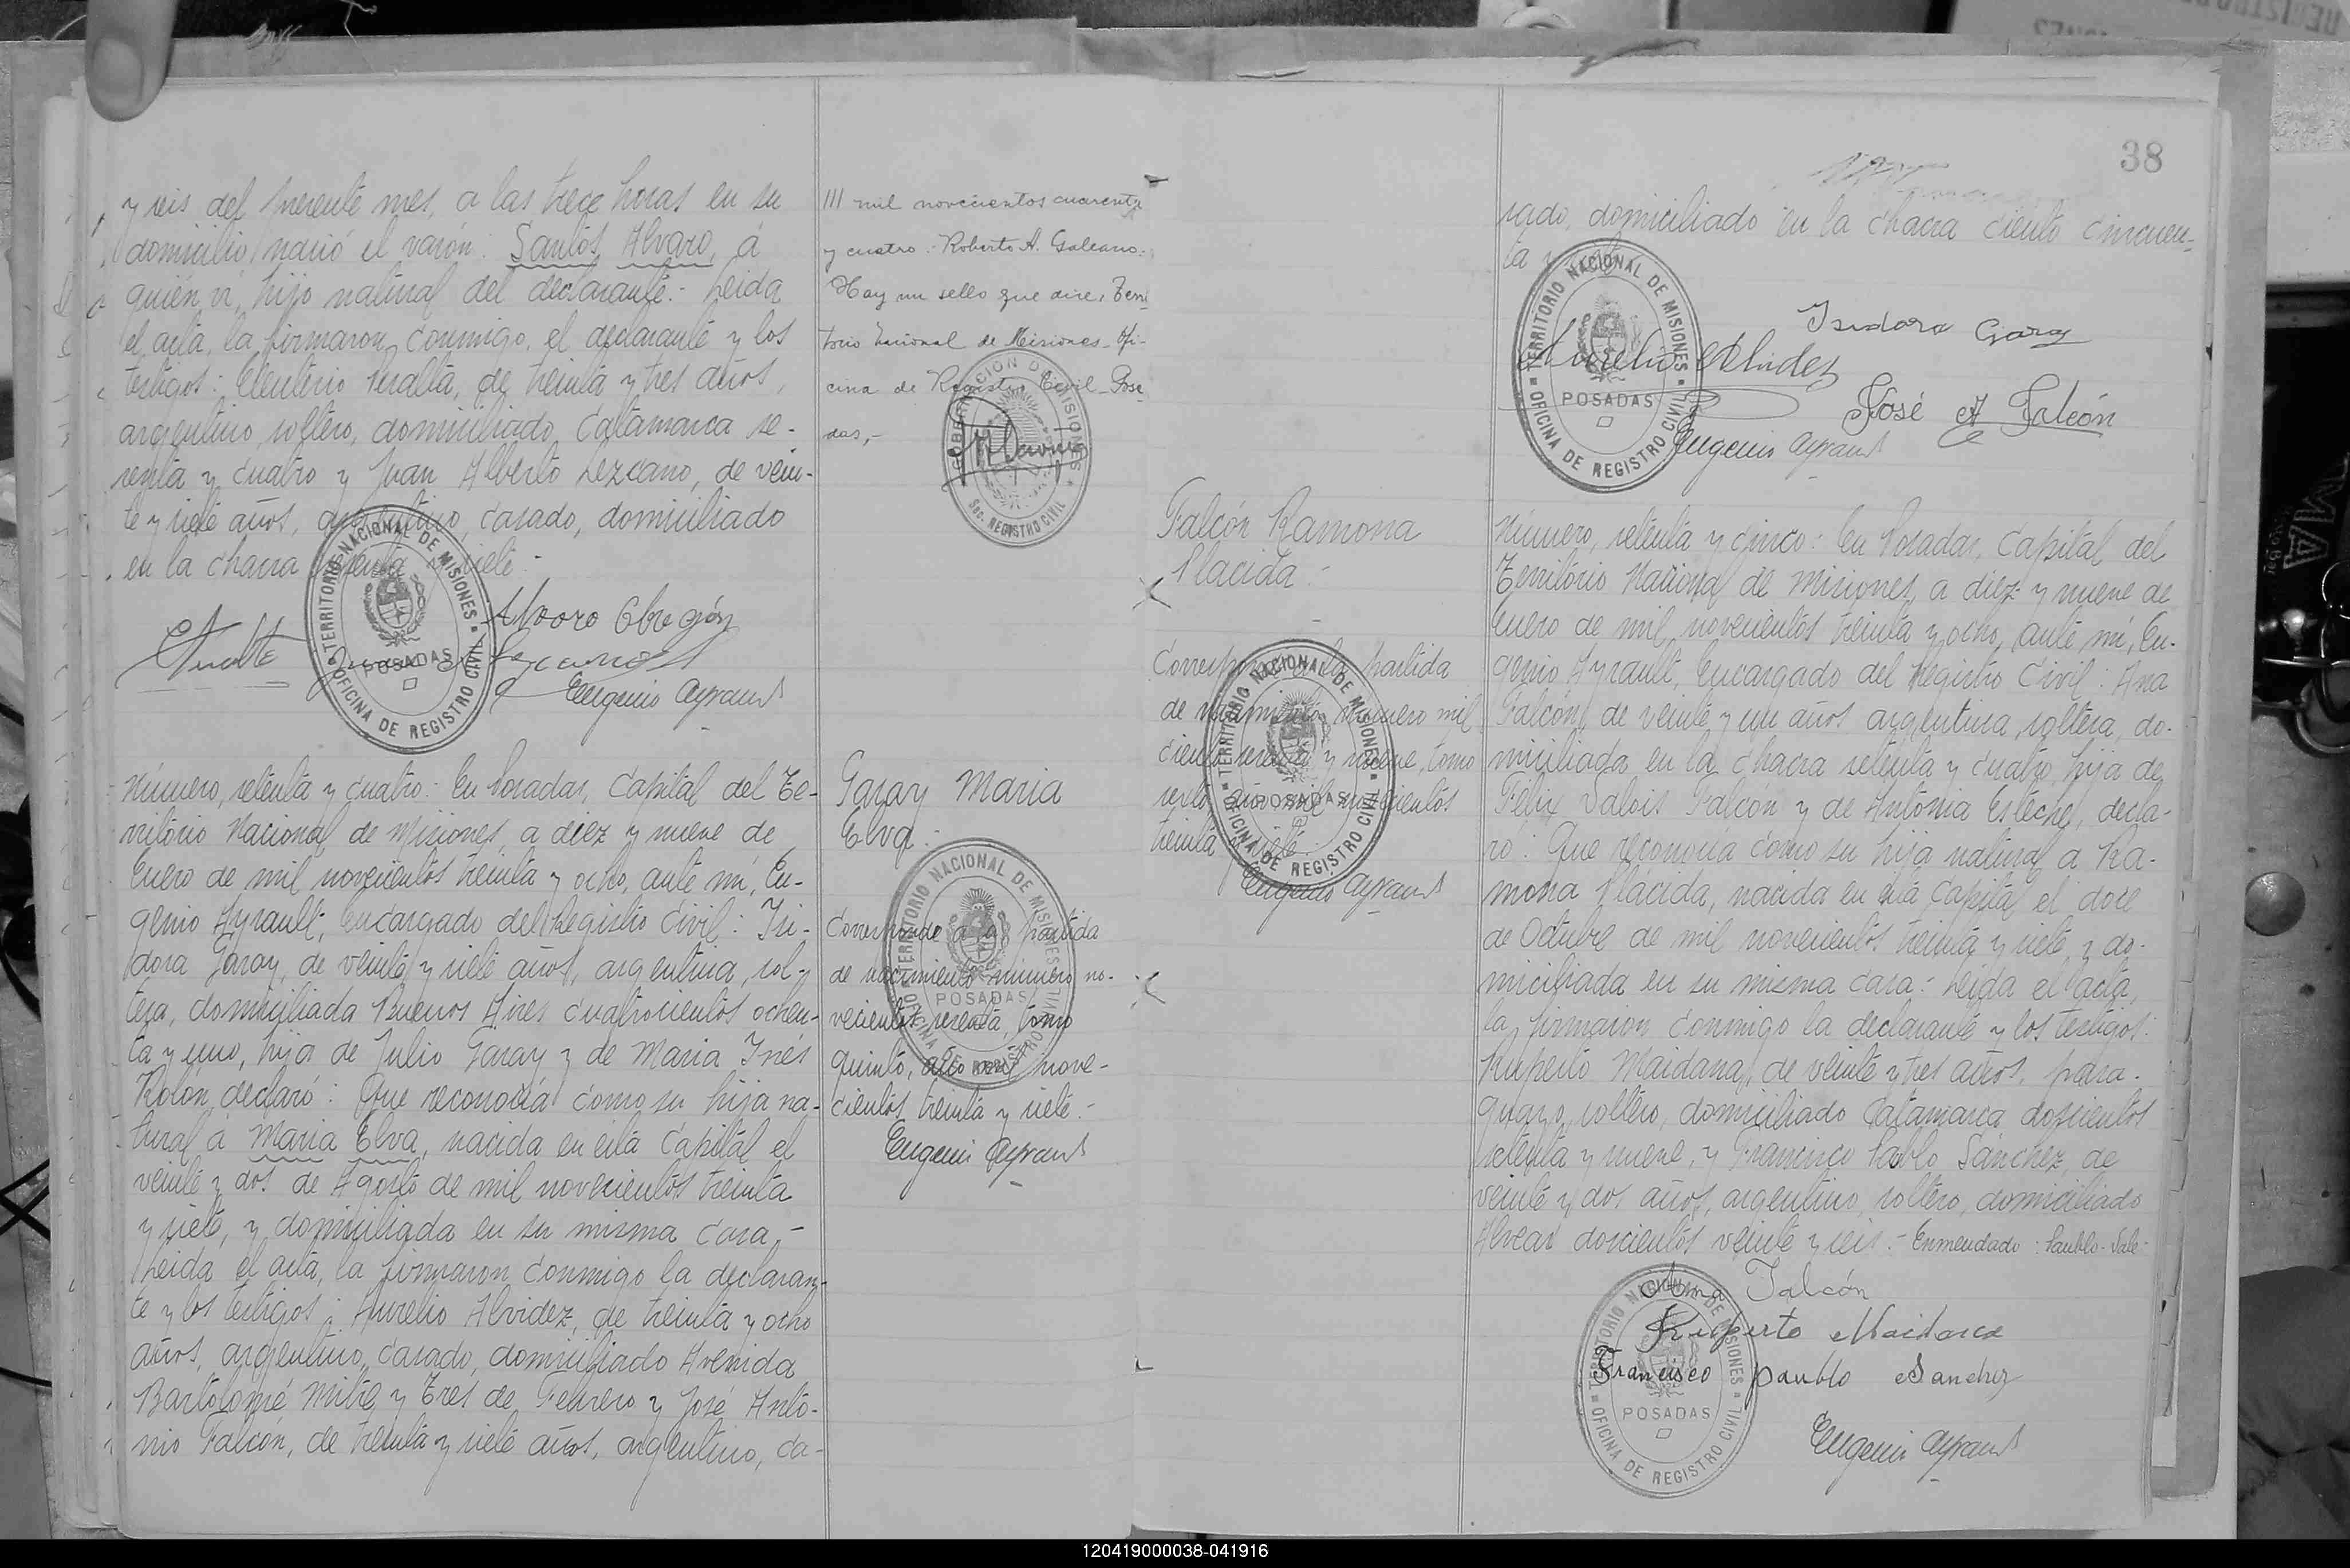 y seis del presente mes, a las trece horas en su
domicilio, nació el varón: Santos Alvaro, á
quién ví, hijo natural del declarante.- Leida
el acta, la firmaron conmigo, el declarante y los
testigos: Eleuterio Peralta, de treinta y tres años,
argentino, soltero, domiciliado, Catamarca se-
senta y cuatro y Juan Alberto Lezcano, de vein-
te y siete años, argentino, casado, domiciliado
en la chacra y siete.-
Alvaro Obregón
Eugenio Ayrault
TERRITORIO NACIONAL DE MISIONES
POSADAS
OFICINA DE REGISTRO CIVIL
Número, setenta y cuatro: En Posadas, Capital del Te-
rritorio Nacional de Misiones, a diez y nueve de
Enero de mil novecientos treinta y ocho, ante mí, Eu-
genio Ayrault, Encargado del Registro Civil: Isi-
dora Garay, de veinte y siete años, argentina, sol-
tera, domiciliada Buenos Aires cuatrocientos ochen-
ta y uno, hija de Julio Garay y de Maria Inés
Rolon, declaró: Que reconocía como su hija na-
tural á Maria Elva, nacida en esta Capital el
veinte y dos de Agosto de mil novecientos treinta
y siete, y domiciliada en su misma casa.-
Leida el acta, la firmaron conmigo la declaran-
te y los testigos: Aurelio Alvidez, de treinta y ocho
años, argentino, casado, domiciliado Avenida
Bartolomé Mitre y Tres de Febrero y José Anto-
nio Falcón, de treinta y siete años, argentino, ca-
III mil novecientos cuarenta
y cuatro.- Roberto A. Galeano.-
Hay un sello que dice: Terri
torio Nacional de Misiones- Ofi-
cina de Registro Civil- Posa
das,-
GOBERNACION DE MISIONES
Sec. REGISTRO CIVIL
Garay Maria
Elva.-
Corresponde a la partida
de nacimiento número no-
vecientos sesenta, tomo
quinto, año mil nove-
cientos treinta y siete.-
Eugenio Ayrault
TERRITORIO NACIONAL DE MISIONES
POSADAS
OFICINA DE REGISTRO CIVIL
38
sado, domiciliado en la chacra ciento cincuen-
ta y
Isidora Garay
Aurelio Alvidez
José A Falcón
Eugenio Ayrault
TERRITORIO NACIONAL DE MISIONES
POSADAS
OFICINA DE REGISTRO CIVIL
Falcón Ramona
Placida.-
Corresponde a la partida
de nacimiento número mil
ciento y nueve, tomo
sexto, año mil novecientos
treinta y siete.-
Eugenio Ayrault
TERRITORIO NACIONAL DE MISIONES
POSADAS
OFICINA DE REGISTRO CIVIL
Número, setenta y cinco: En Posadas, Capital del
Territorio Nacional de Misiones, a diez y nueve de
Enero de mil novecientos treinta y ocho, ante mí, Eu-
genio Ayrault, Encargado del Registro Civil: Ana
Falcón, de veinte y un años, argentina, soltera, do-
miciliada en la chacra setenta y cuatro, hija de
Felix Valois Falcon y de Antonia Esteche, decla-
ró: Que reconocía como su hija natural a Ra-
mona Plácida, nacida en esta Capital el doce
de Octubre de mil novecientos treinta y siete, y do-
miciliada en su misma casa.- Leida el acta,
la firmaron conmigo la declarante y los testigos:
Ruperto Maidana, de veinte y tres años, para-
guayo, soltero, domiciliado Catamarca doscientos
setenta y nueve, y Francisco Pablo Sánchez, de
veinte y dos años, argentino, soltero, domiciliado
Alvear doscientos veinte y seis.- Enmendado: Paublo- Vale-
Ana Falcón
Ruperto Maidana
Francisco paublo Sanchez
Eugenio Ayrault
TERRITORIO NACIONAL DE MISIONES
POSADAS
OFICINA DE REGISTRO CIVIL
120419000038-041916